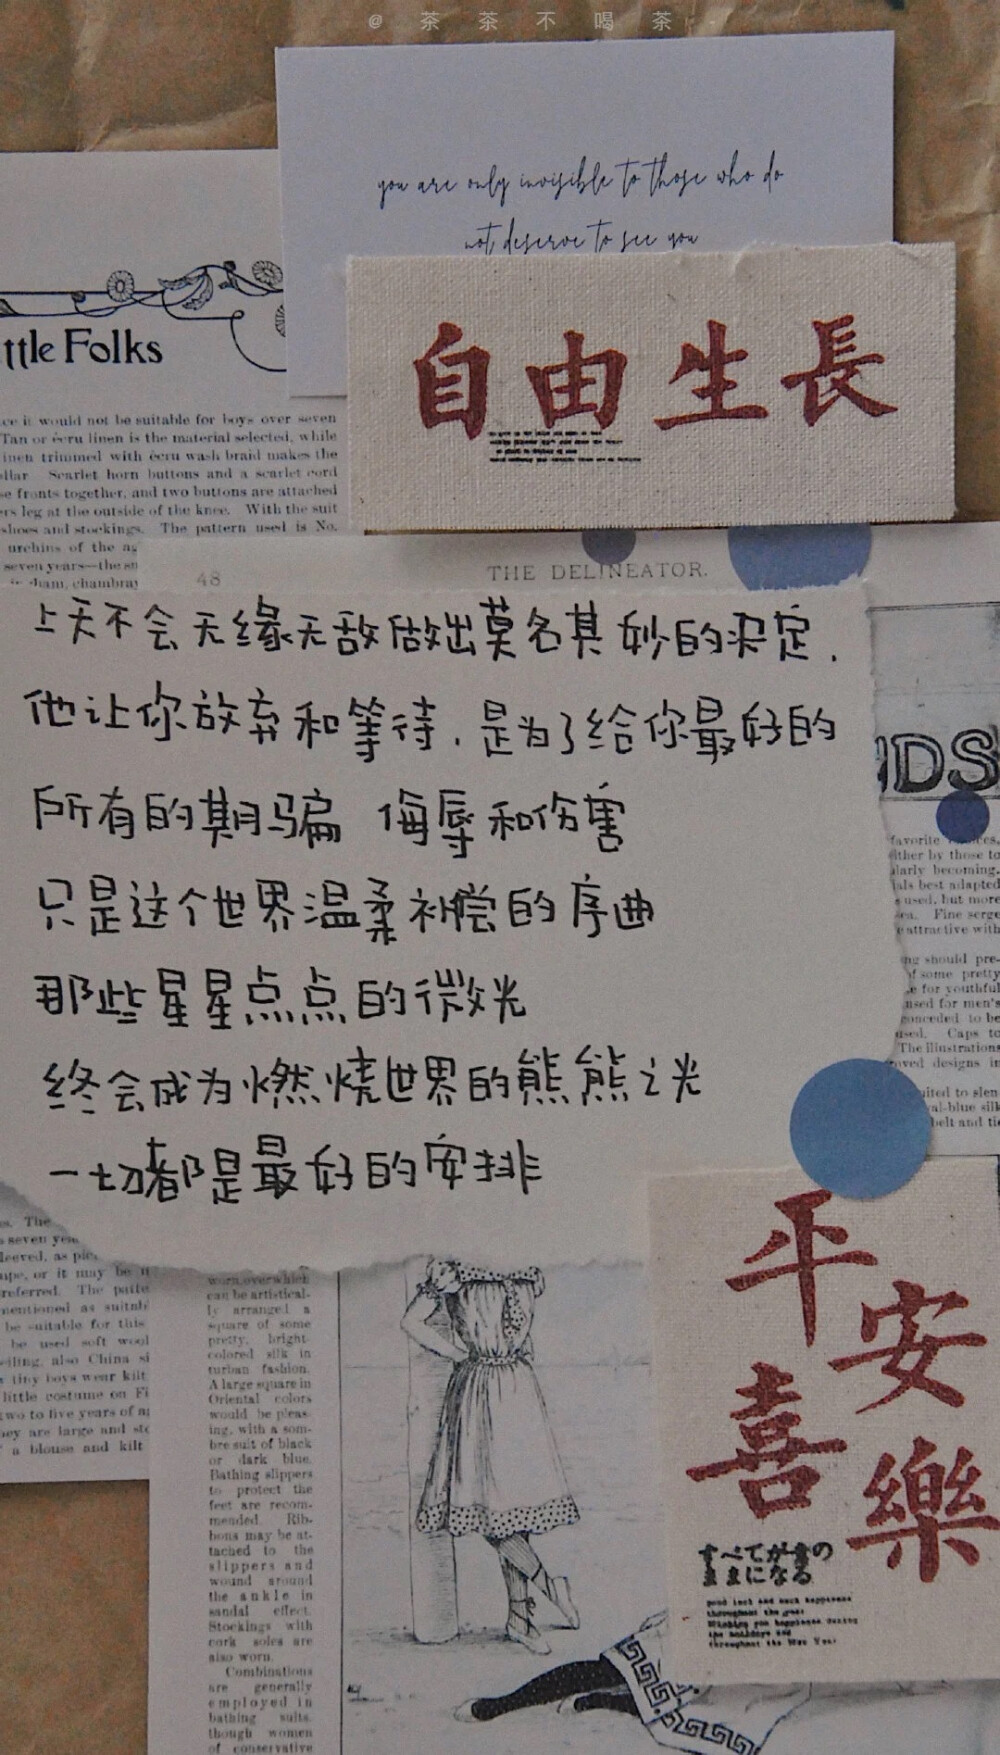 @茶茶不喝茶
you are only invisible to those who do
not deserve to see you
自由生長
ttle Folks
ce it would not be suitable for boys over seven
Tan or écru linen is the material selected, while
inen trimmed with écru wash braid makes the
llar Scarlet horn buttons and a scarlet cord
se fronts together, and two buttons are attached
ers leg at the outside of the knee. With the suit
shoes and stockings. The pattern used is No.
urchins of the ag
seven years—the su
ham, chambray
48
THE DELINEATOR.
上天不会无缘无故做出莫名其妙的决定.
他让你放弃和等待.是为了给你最好的
所有的期骗 侮辱和伤害
只是这个世界温柔补偿的序曲
那些星星点点的微光
终会成为燃烧世界的熊熊之光
一切都是最好的安排
NDS
favorite
ither by those to
larly becoming.
als best adapted
s used, but more
sea. Fine serge
e attractive with
ng should pre-
of some pretty
e for youthful
used for men's
conceded to be
used. Caps to
The illustrations
oved designs in
uited to slen-
val-blue silk
belt and tie
The
seven yea
leeved, as pie
ape, or it may be
referred. The patte
mentioned as suitab
be suitable for this
be used soft wool
eiling, also China si
tiny boys wear kilt
little costume on Fi
two to five years of a
hey are large and sto
a blouse and kilt
worn, over which
can be artistical-
ly arranged a
square of some
pretty, bright-
colored silk in
turban fashion.
A large square in
Oriental colors
would be pleas-
ing, with a som-
bre suit of black
or dark blue.
Bathing slippers
to protect the
feet are recom-
mended. Rib-
bons may be at-
tached to the
slippers and
wound around
the ankle in
sandal effect.
Stockings with
cork soles are
also worn.
Combinations
are generally
employed in
bathing suits,
though women
of conservative
平安
喜樂
すべてが書の
ままになる
good luck and much happiness
throughout the year
Wishing you happiness during
the holidays and
throughout the New Year